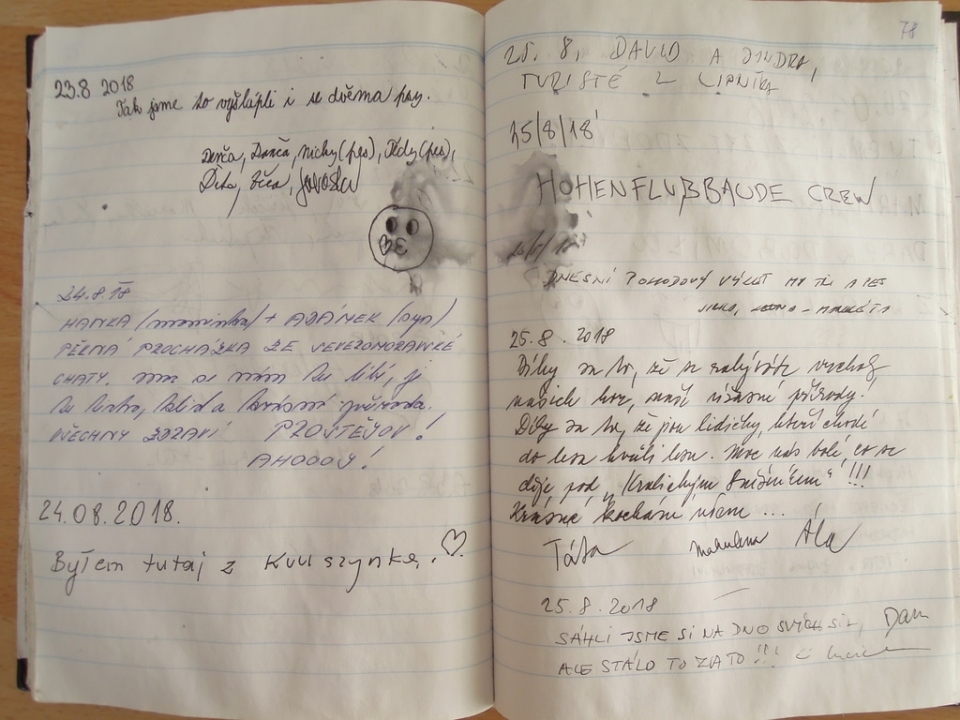 23.8 2018
Tak jsme to vyšlápli i se dvěma psy.
Denča, Danča, Nicky (pes), (pes),
Déta,
24.8.18
HANKA (maminka) + ADÁMEK (syn)
PĚKNÁ PROCHÁZKA ZE
CHATY. se nám tu líbí, je
tu krásná příroda.
VŠECHNY ZDRAVÍ PROSTĚJOV!
AHOOOY!
24.08.2018.
Byłem tutaj z Kuuszynką.
78
25. 8, DAVID A JINDRA,
TURISTÉ Z LIPNÍKA
25/8/18
HOHENFLUßBAUDE CREW
DNEŠNÍ POHODOVÝ VÝLET MY TŘI A PES
25.8.2018
Díky za to, že se zabýváte
našich hor, naší úžasné přírody!
Díky za to, že jsou lidičky, kteří chodí
do lesa kvůli lesu. Moc nás bolí, co se
děje pod „Králickým Sněžníkem"!!!
Krásné kochání všem ...
Táta Mahulena Ála
25.8.2018
SÁHLI JSME SI NA DNO SVÝCH SIL, Dan
ALE STÁLO TO ZATO!!!